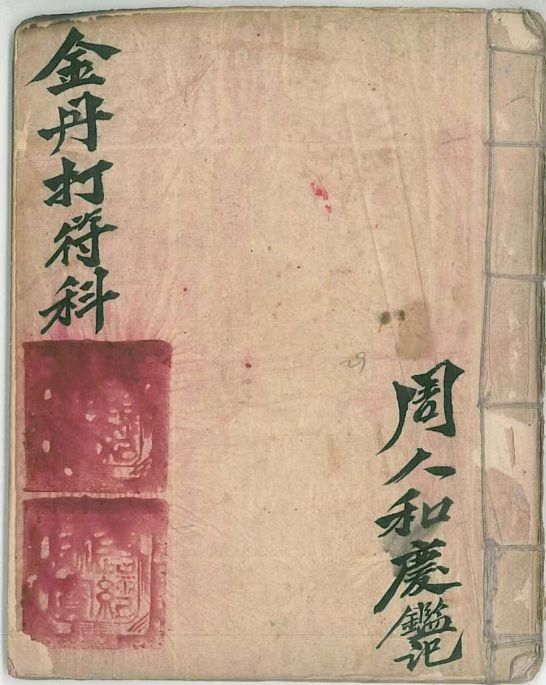 金丹打符科
周人和慶鑑記
29